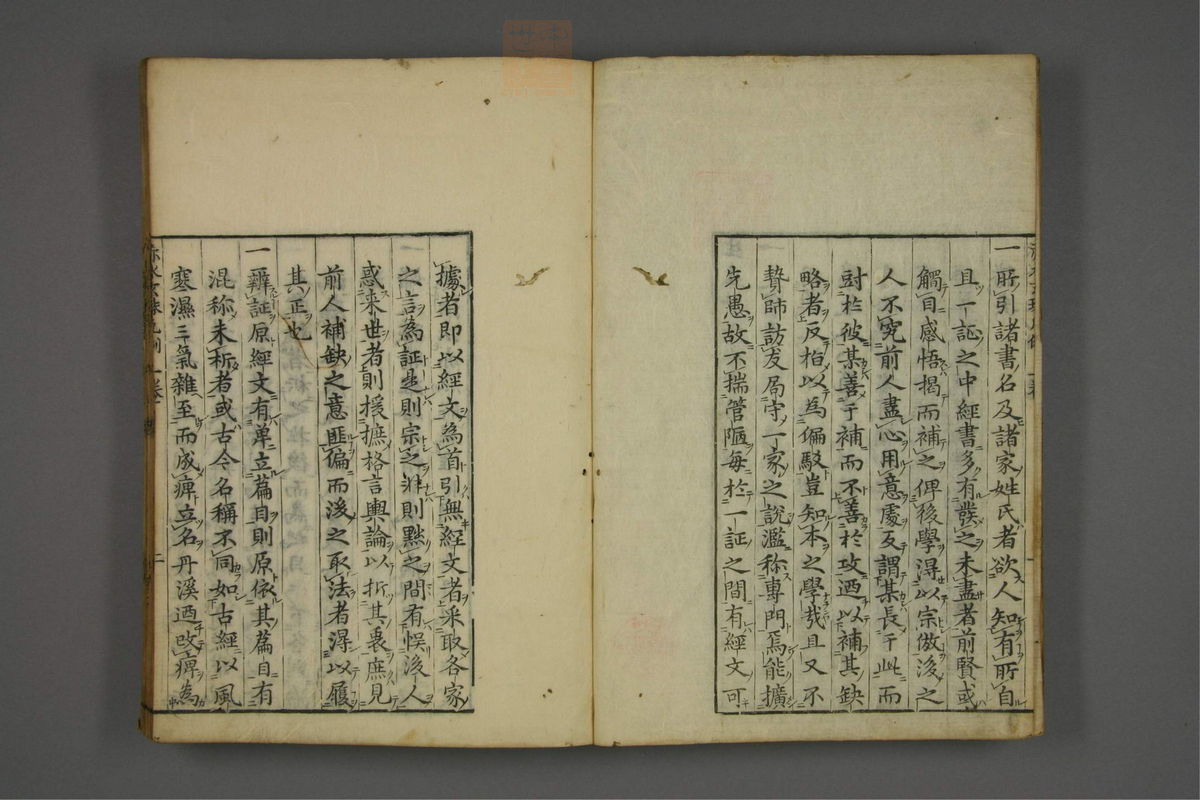 一所引諸書名及諸家姓氏者欲人知有所自
且一証之中經書多有發之未盡者前賢或
觸目感悟揭而補之俾後學得以宗倣後之
人不究前人盡心用意處反謂某長于此而
討於彼某善于補而不善於攻迺以補其缺
略者反枱以為偏駁豈知本之學哉且又不
贄師訪友局守一家之說濫称專門焉能擴
先愚故不揣管陋每於一証之間有經文可
據者即以經文為首引無經文者采取各家
之言為証是則宗之非則黜之間有悮後人
惑来世者則援摭格言輿論以折其衷庶見
前人補缺之意匪偏而後之取法者得以履
其正也
一辯証原經文有单立篇目則原依其篇目有
混称未析者或古今名稱不同如古經以風
寒濕三氣雜至而成痺立名丹溪迺改痺為